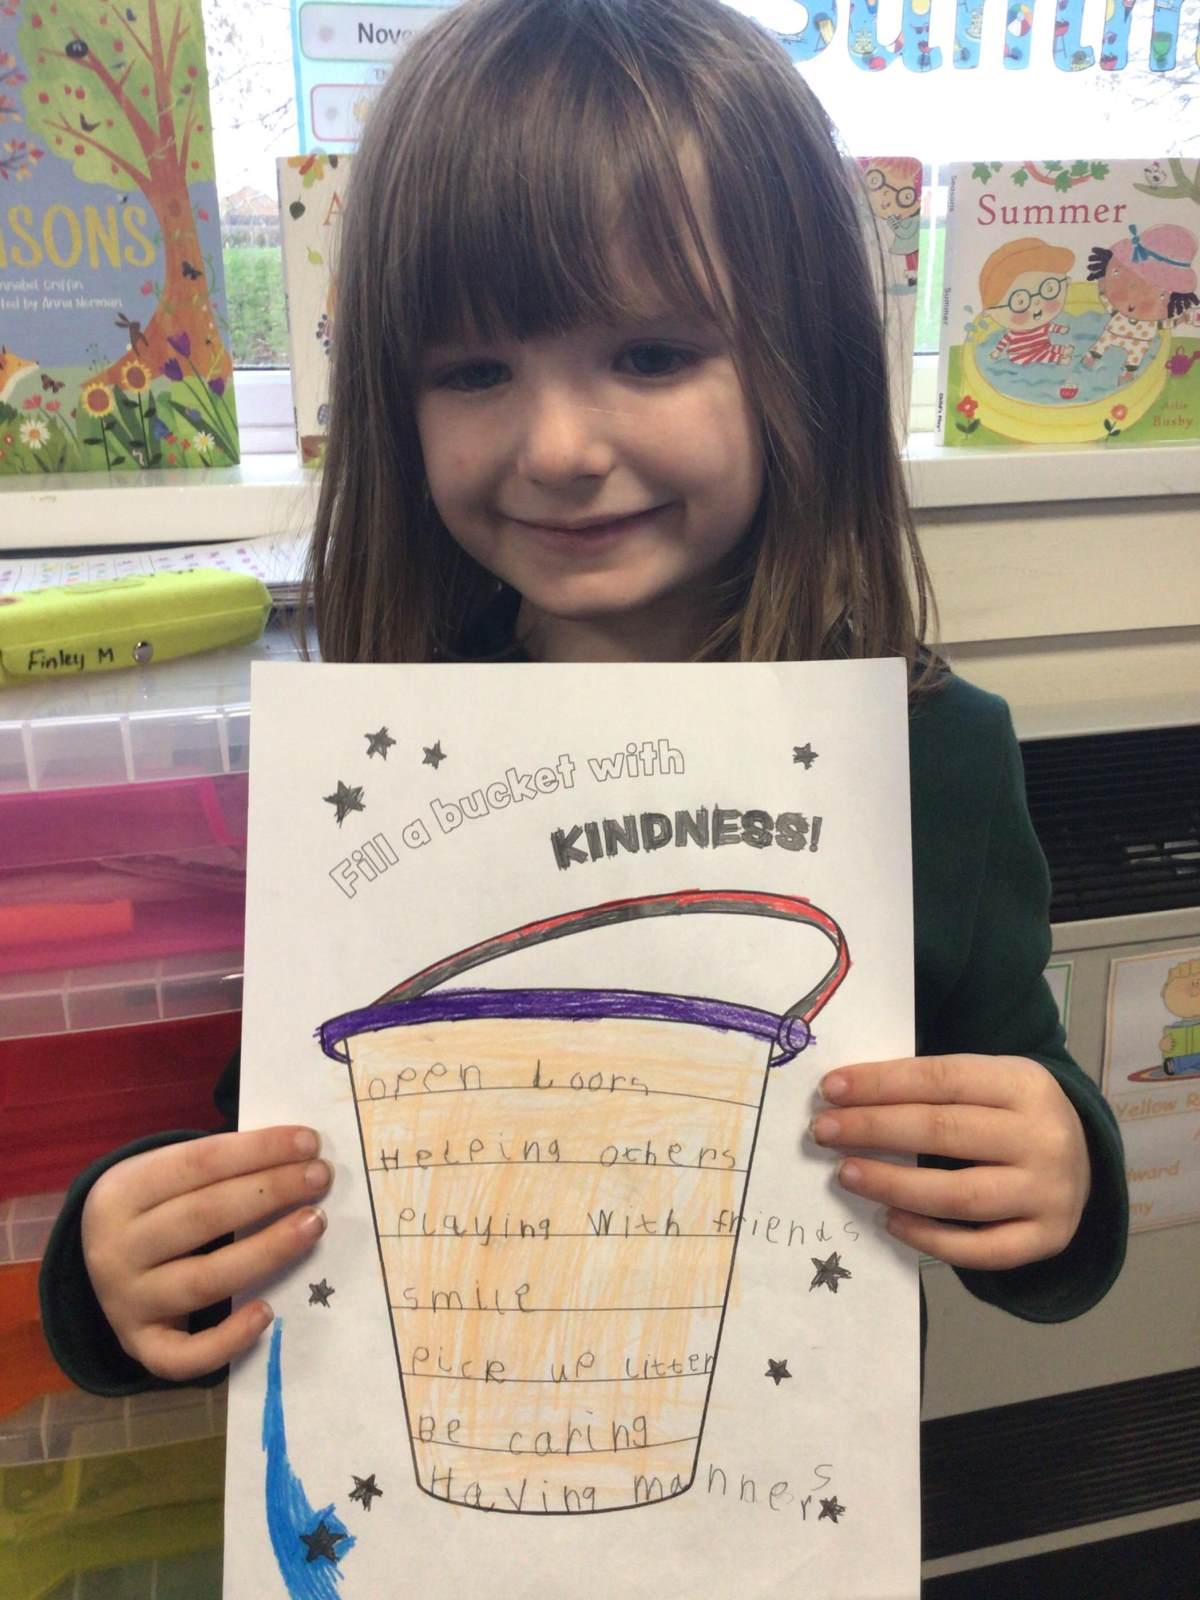 Summer
SONS
Annabel Griffin
ted by Anna Norman
Summer
Ailie
Busby
Child's Play
Finley M
Fill a bucket with
KINDNESS!
open doors
Helping others
playing with friends
smile
pick up litter
Be caring
Having manners
Yellow